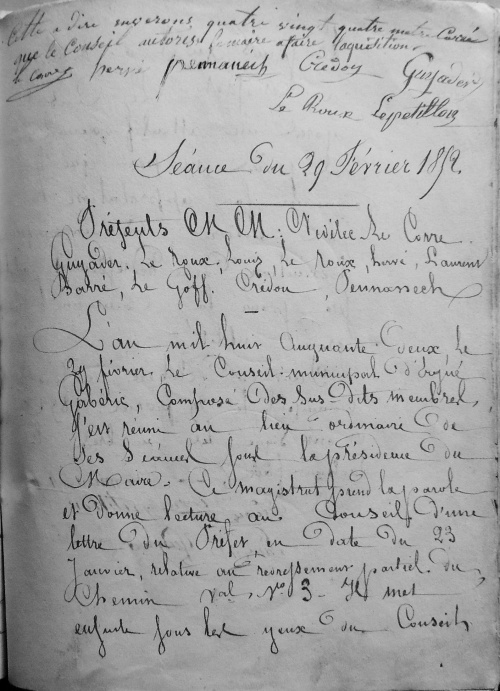 cette a dire environs quatre vingt quatre metre Carré
que le Conseil autorise le maire a faire l'aquisition.
le Corre pennanech Crédou Guyader
Le Roux Lepetillon
Séance Du 29 Février 1852.
Présents MM. Nivilec Le Corre
Guyader, Le Roux, Louis, Le Roux, hervé, Laurent
Barré, Le Goff. Crédou, Pennanech
L'an mil huit cinquante deux le
29 février, le Conseil municipal d'Ergué
Gabéric, composé des sus dits membres,
s'est réuni au lieu ordinaire de
ses séances sous la présidence du
Maire. Ce magistrat prend la parole
et donne lecture au Conseil d'une
lettre du Préfet en date du 23
Janvier, relative au redressement partiel du
Chemin val. No 3 - Il met
ensuite sous les yeux du Conseil